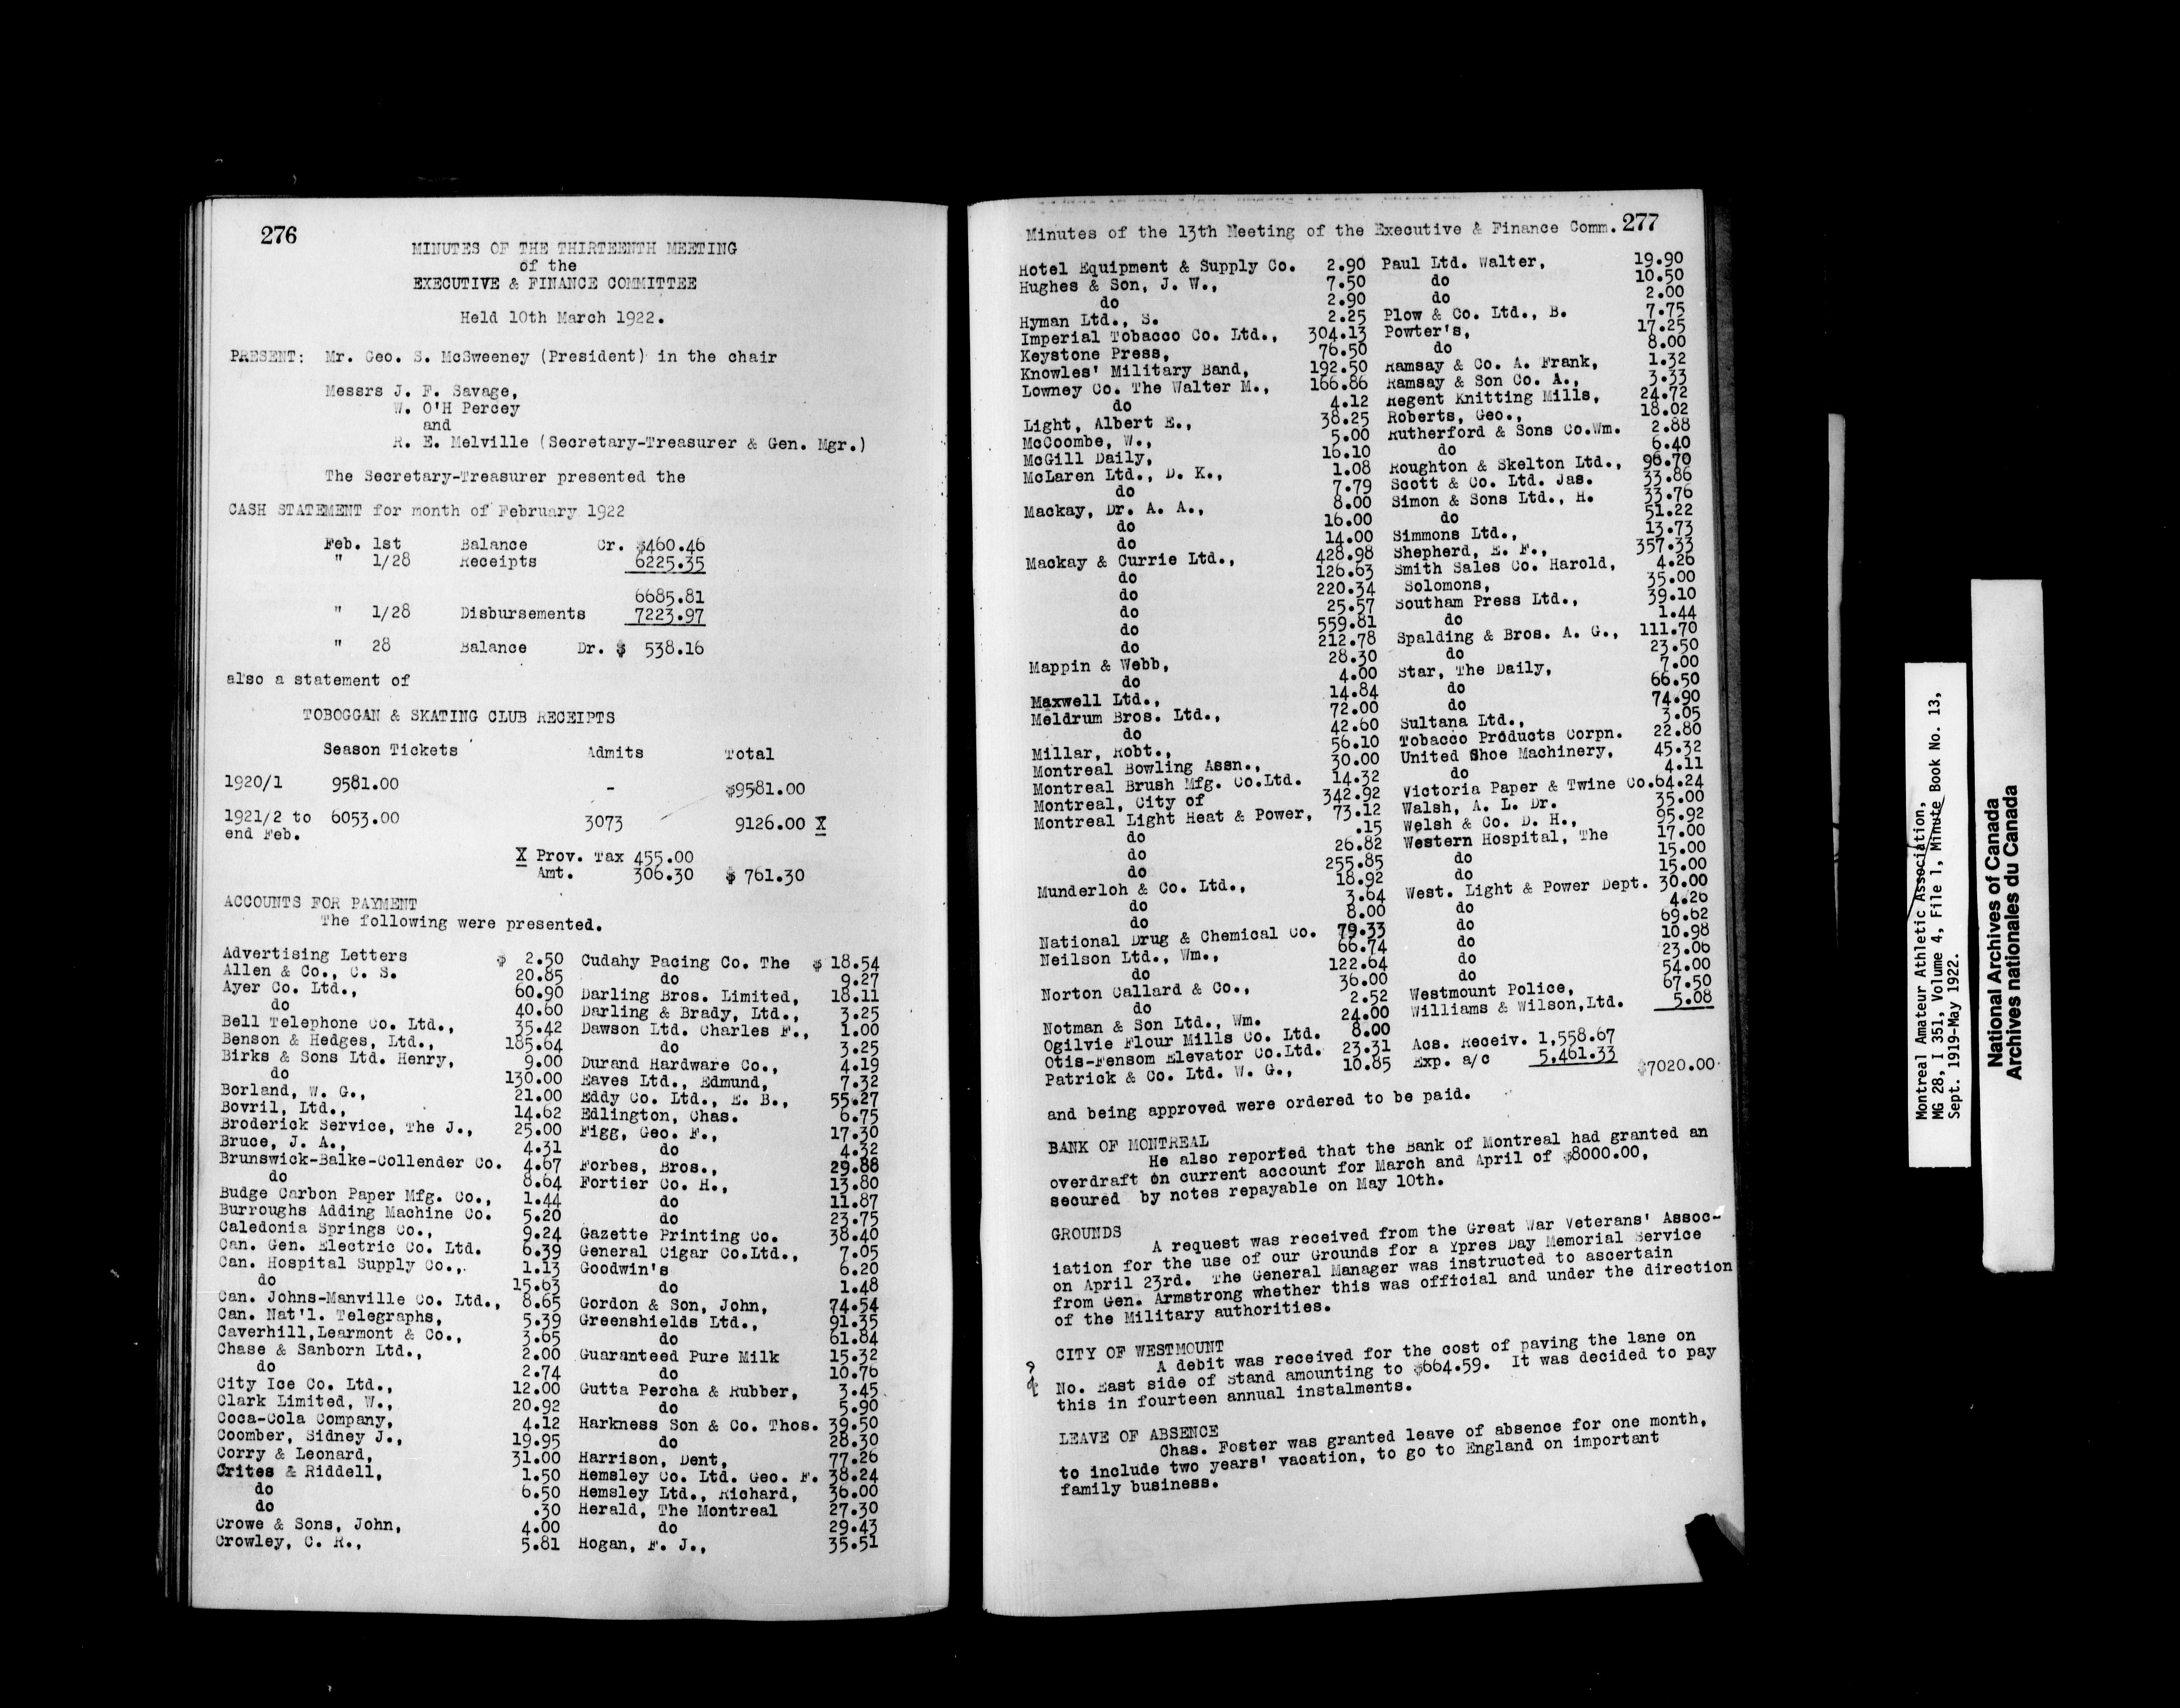 276
MINUTES OF THE THIRTEENTH MEETING
of the
EXECUTIVE & FINANCE COMMITTEE
Held 10th March 1922.
PRESENT: Mr. Geo. S. McSweeney (President) in the chair
Messrs J. F. Savage,
W. O'H Percey
and
R. E. Melville (Secretary-Treasurer & Gen. Mgr.)
The Secretary-Treasurer presented the
CASH STATEMENT for month of February 1922
Feb. 1st Balance Cr. $460.46
" 1/28 Receipts 6225.35
6685.81
" 1/28 Disbursements 7223.97
" 28 Balance Dr. $ 538.16
also a statement of
TOBOGGAN & SKATING CLUB RECEIPTS
Season Tickets Admits Total
1920/1 9581.00 - $9581.00
1921/2 to 6053.00 3073 9126.00 X
end Feb.
X Prov. Tax 455.00
Amt. 306.30 $ 761.30
ACCOUNTS FOR PAYMENT
The following were presented.
Advertising Letters $ 2.50
Allen & Co., C. S. 20.85
Ayer Co. Ltd., 60.90
do 40.60
Bell Telephone Co. Ltd., 35.42
Benson & Hedges, Ltd., 185.64
Birks & Sons Ltd. Henry, 9.00
do 130.00
Borland, W. G., 21.00
Bovril, Ltd., 14.62
Broderick Service, The J., 25.00
Bruce, J. A., 4.31
Brunswick-Balke-Collender Co. 4.67
do 8.64
Budge Carbon Paper Mfg. Co., 1.44
Burroughs Adding Machine Co. 5.20
Caledonia Springs Co., 9.24
Can. Gen. Electric Co. Ltd. 6.39
Can. Hospital Supply Co., 1.13
do 15.63
Can. Johns-Manville Co. Ltd., 8.65
Can. Nat'l. Telegraphs, 5.39
Caverhill,Learmont & Co., 3.65
Chase & Sanborn Ltd., 2.00
do 2.74
City Ice Co. Ltd., 12.00
Clark Limited, W., 20.92
Coca-Cola Company, 4.12
Coomber, Sidney J., 19.95
Corry & Leonard, 31.00
Crites & Riddell, 1.50
do 6.50
do .30
Crowe & Sons, John, 4.00
Crowley, C. R., 5.81
Cudahy Pacing Co. The $ 18.54
do 9.27
Darling Bros. Limited, 18.11
Darling & Brady, Ltd., 3.25
Dawson Ltd. Charles F., 1.00
do 3.25
Durand Hardware Co., 4.19
Eaves Ltd., Edmund, 7.32
Eddy Co. Ltd., E. B., 55.27
Edlington, Chas. 6.75
Figg, Geo. F., 17.30
do 4.32
Forbes, Bros., 29.88
Fortier Co. H., 13.80
do 11.87
do 23.75
Gazette Printing Co. 38.40
General Cigar Co.Ltd., 7.05
Goodwin's 6.20
do 1.48
Gordon & Son, John, 74.54
Greenshields Ltd., 91.35
do 61.84
Guaranteed Pure Milk 15.32
do 10.76
Gutta Percha & Rubber, 3.45
do 5.90
Harkness Son & Co. Thos. 39.50
do 28.30
Harrison, Dent, 77.26
Hemsley Co. Ltd. Geo. F. 38.24
Hemsley Ltd., Richard, 36.00
Herald, The Montreal 27.30
do 29.43
Hogan, F. J., 35.51
Minutes of the 13th Meeting of the Executive & Finance Comm. 277
Hotel Equipment & Supply Co. 2.90
Hughes & Son, J. W., 7.50
do 2.90
Hyman Ltd., S. 2.25
Imperial Tobacco Co. Ltd., 304.13
Keystone Press, 76.50
Knowles' Military Band, 192.50
Lowney Co. The Walter M., 166.86
do 4.12
Light, Albert E., 38.25
McCoombe, W., 5.00
McGill Daily, 16.10
McLaren Ltd., D. K., 1.08
do 7.79
Mackay, Dr. A. A., 8.00
do 16.00
do 14.00
Mackay & Currie Ltd., 428.98
do 126.63
do 220.34
do 25.57
do 559.81
do 212.78
Mappin & Webb, 28.30
do 4.00
Maxwell Ltd., 14.84
Meldrum Bros. Ltd., 72.00
do 42.60
Millar, Robt., 56.10
Montreal Bowling Assn., 30.00
Montreal Brush Mfg. Co.Ltd. 14.32
Montreal, City of 342.92
Montreal Light Heat & Power, 73.12
do .15
do 26.82
do 255.85
Munderloh & Co. Ltd., 18.92
do 3.64
do 8.00
National Drug & Chemical Co. 79.33
Neilson Ltd., Wm., 66.74
do 122.64
Norton Callard & Co., 36.00
do 2.52
Notman & Son Ltd., Wm. 24.00
Ogilvie Flour Mills Co. Ltd. 8.00
Otis-Fensom Elevator Co.Ltd. 23.31
Patrick & Co. Ltd. W. G., 10.85
Paul Ltd. Walter, 19.90
do 10.50
do 2.00
Plow & Co. Ltd., B. 7.75
Powter's, 17.25
do 8.00
Ramsay & Co. A. Frank, 1.32
Ramsay & Son Co. A., 3.33
Regent Knitting Mills, 24.72
Roberts, Geo., 18.02
Rutherford & Sons Co.Wm. 2.88
do 6.40
Roughton & Skelton Ltd., 96.70
Scott & Co. Ltd. Jas. 33.86
Simon & Sons Ltd., H. 33.76
do 51.22
Simmons Ltd., 13.73
Shepherd, E. F., 357.33
Smith Sales Co. Harold, 4.26
Solomons, 35.00
Southam Press Ltd., 39.10
do 1.44
Spalding & Bros. A. G., 111.70
do 23.50
Star, The Daily, 7.00
do 66.50
do 74.90
Sultana Ltd., 3.05
Tobacco Products Corpn. 22.80
United Shoe Machinery, 45.32
do 4.11
Victoria Paper & Twine Co.64.24
Walsh, A. L. Dr. 35.00
Welsh & Co. D. H., 95.92
Western Hospital, The 17.00
do 15.00
do 15.00
West. Light & Power Dept. 30.00
do 4.26
do 69.62
do 10.98
do 23.06
do 54.00
Westmount Police, 67.50
Williams & Wilson,Ltd. 5.08
Acs. Receiv. 1,558.67
Exp. a/c 5,461.33 $7020.00
and being approved were ordered to be paid.
BANK OF MONTREAL
He also reported that the Bank of Montreal had granted an
overdraft on current account for March and April of $8000.00,
secured by notes repayable on May 10th.
GROUNDS
A request was received from the Great War Veterans' Assoc-
iation for the use of our Grounds for a Ypres Day Memorial Service
on April 23rd. The General Manager was instructed to ascertain
from Gen. Armstrong whether this was official and under the direction
of the Military authorities.
CITY OF WESTMOUNT
A debit was received for the cost of paving the lane on
No. East side of Stand amounting to $664.59. It was decided to pay
this in fourteen annual instalments.
LEAVE OF ABSENCE
Chas. Foster was granted leave of absence for one month,
to include two years' vacation, to go to England on important
family business.
Montreal Amateur Athletic Association,
MG 28, I 351, Volume 4, File 1, Minute Book No. 13,
Sept. 1919-May 1922.
National Archives of Canada
Archives nationales du Canada